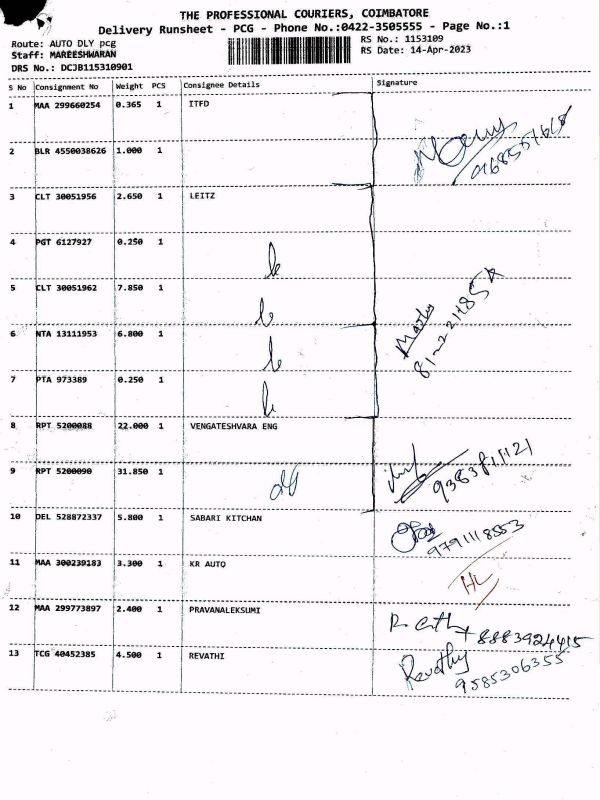 THE PROFESSIONAL COURIERS, COIMBATORE
Delivery Runsheet - PCG - Phone No.:0422-3505555 - Page No.:1
Route: AUTO DLY pcg RS No.: 1153109
Staff: MAREESHWARAN RS Date: 14-Apr-2023
DRS No.: DCJB115310901
S No Consignment No Weight PCS Consignee Details Signature
1 MAA 299660254 0.365 1 ITFD
2 BLR 4550038626 1.000 1
3 CLT 30051956 2.650 1 LEITZ
4 PGT 6127927 0.250 1
5 CLT 30051962 7.850 1
6 NTA 13111953 6.800 1
7 PTA 973389 0.250 1
8 RPT 5200088 22.000 1 VENGATESHVARA ENG
9 RPT 5200090 31.850 1
10 DEL 528872337 5.800 1 SABARI KITCHAN
9791118553
11 MAA 300239183 3.300 1 KR AUTO
HL
12 MAA 299773897 2.400 1 PRAVANALEKSUMI
8883924415
13 TCG 40452385 4.500 1 REVATHI Revathy
9585306355